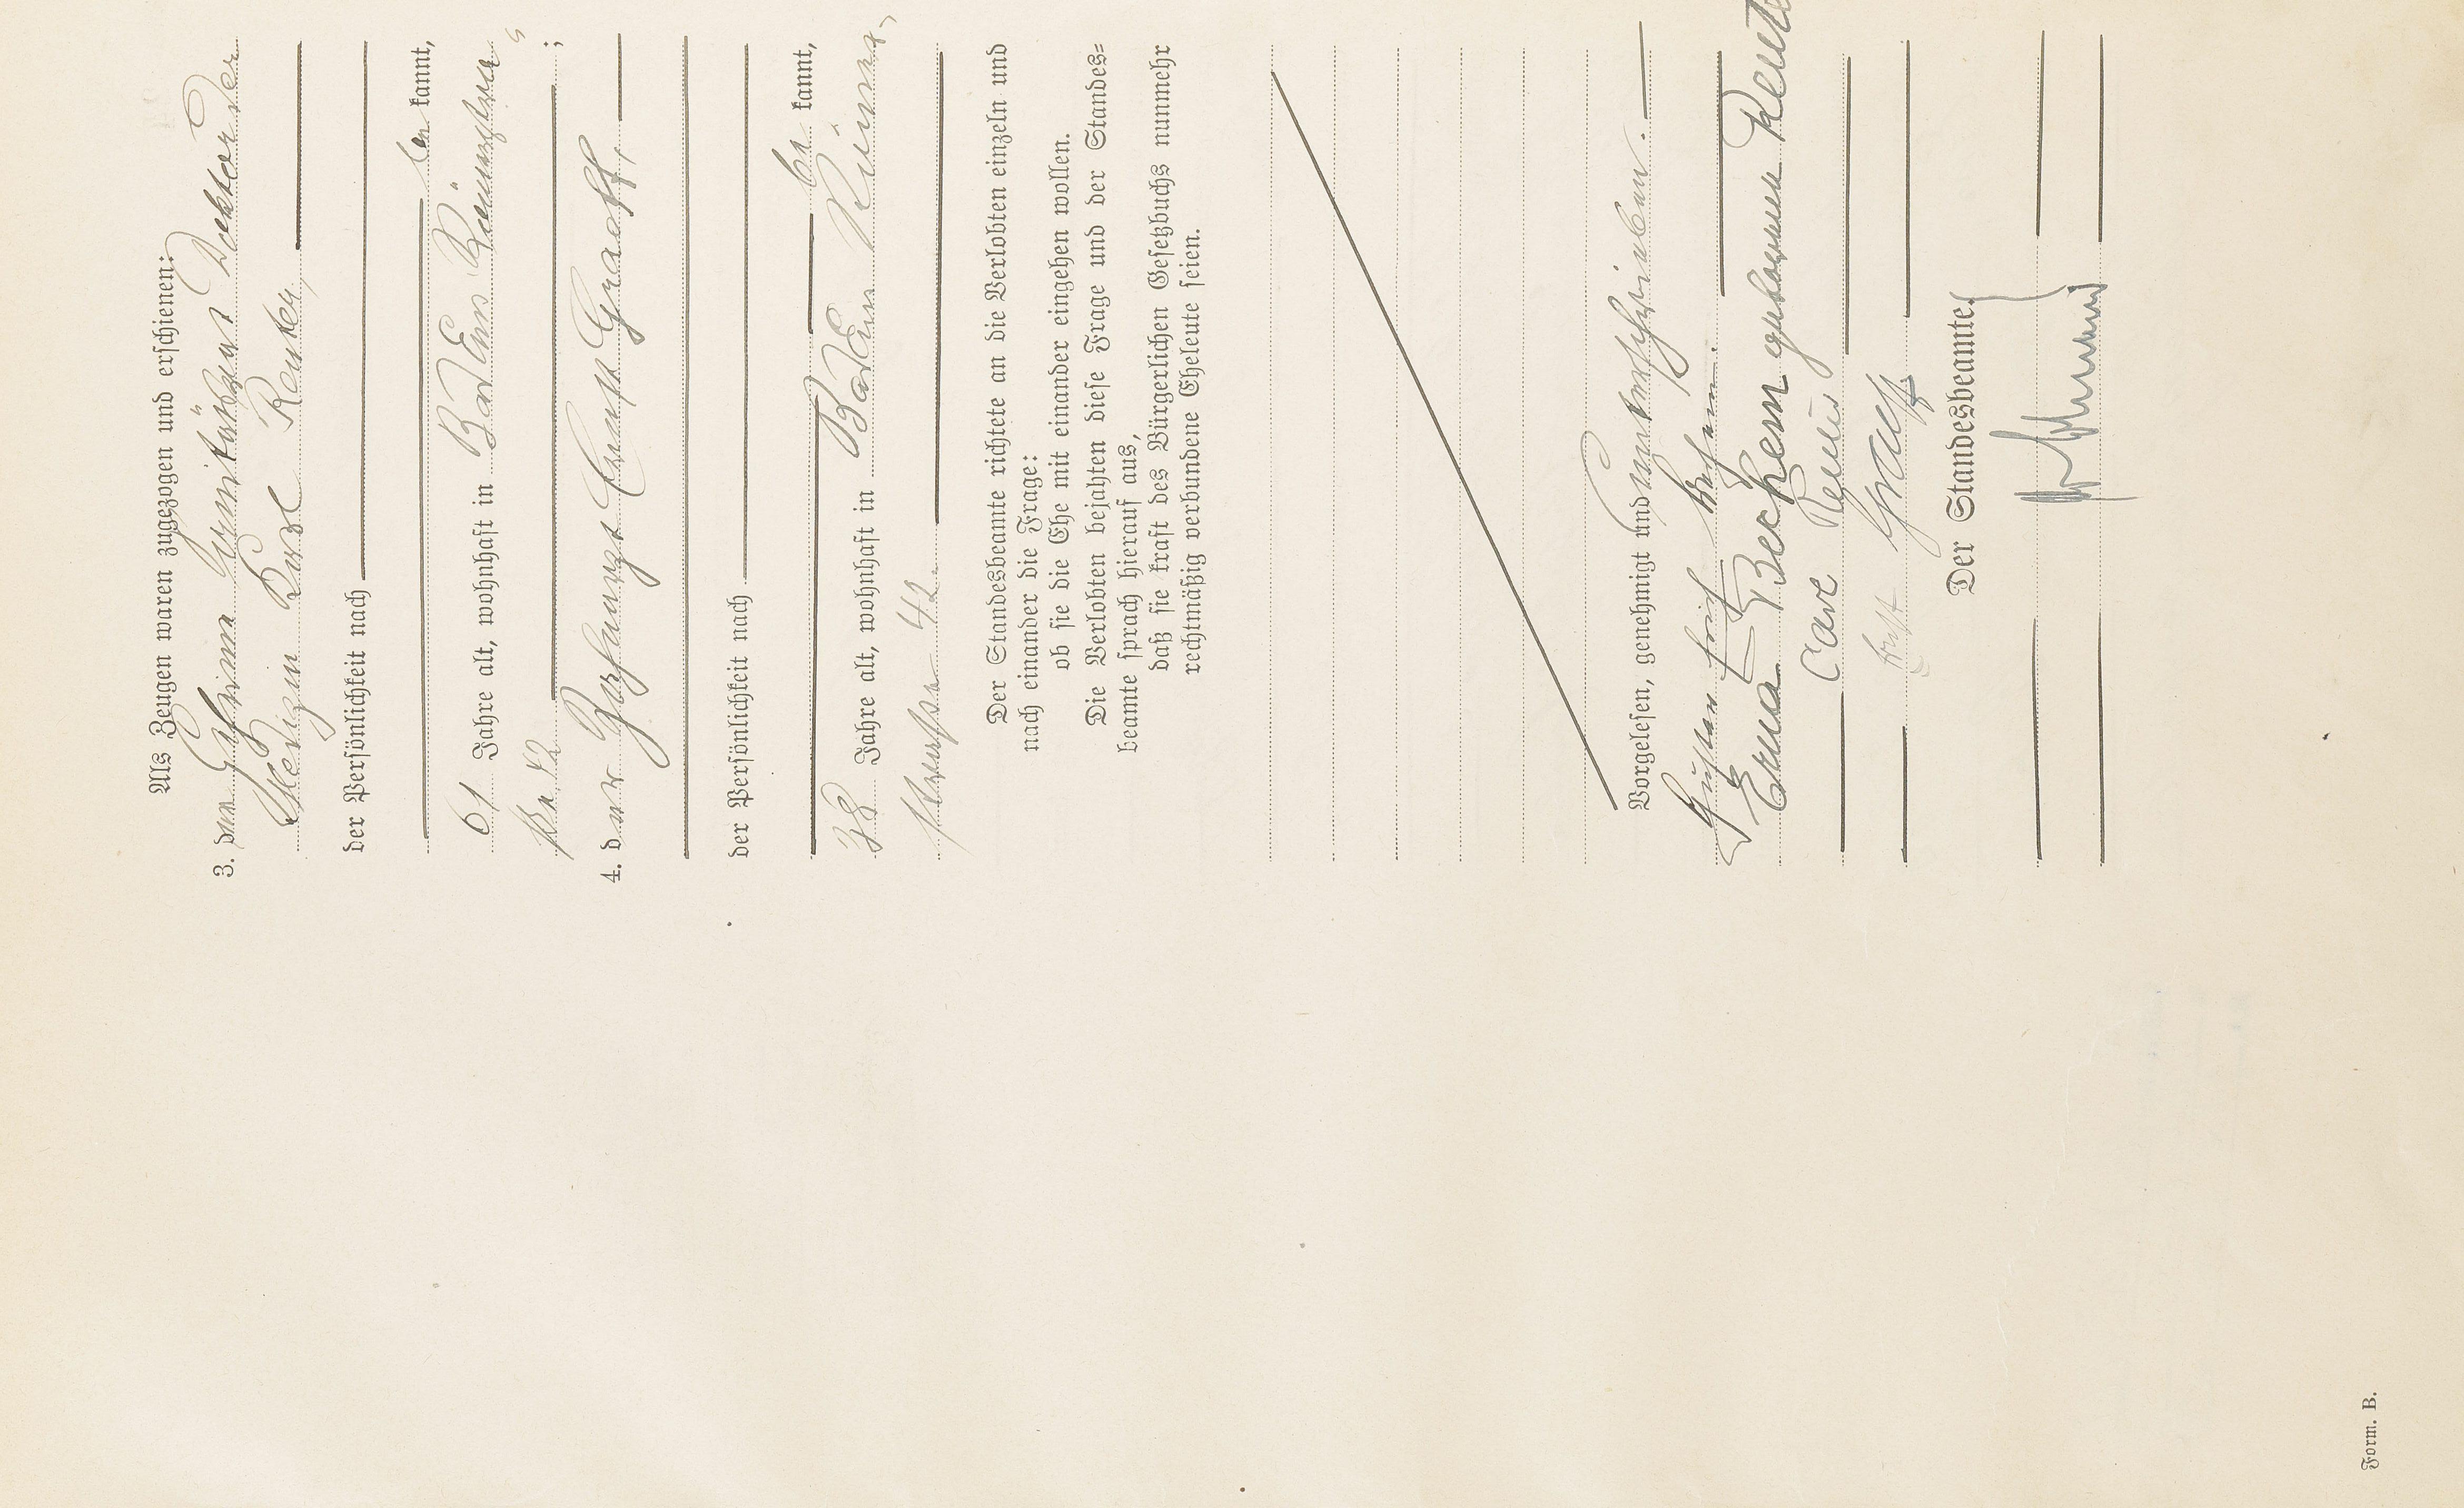 Als Zeugen waren zugezogen und erschienen:
3. der Geheime Sanitätsrat Doktor der
Medizin Karl Reuter,
der Persönlichkeit nach
be kannt,
61 Jahre alt, wohnhaft in Bad Ems Römerstraße
;
4. der Ernst Graeff,
der Persönlichkeit nach
be kannt,
38 Jahre alt, wohnhaft in Bad Ems Römer,
straße 42.
Der Standesbeamte richtete an die Verlobten einzeln und
nach einander die Frage:
ob sie die Ehe mit einander eingehen wollen.
Die Verlobten bejahten diese Frage und der Standes=
beamte sprach hierauf aus,
daß sie kraft des Bürgerlichen Gesetzbuchs nunmehr
rechtmäßig verbundene Eheleute seien.
Vorgelesen, genehmigt und unterschrieben.
Gustav Erich Bechem.
Erna Bechem geborene Reuter
Carl Reuter
Ernst Graeff
Der Standesbeamte.
Form. B.